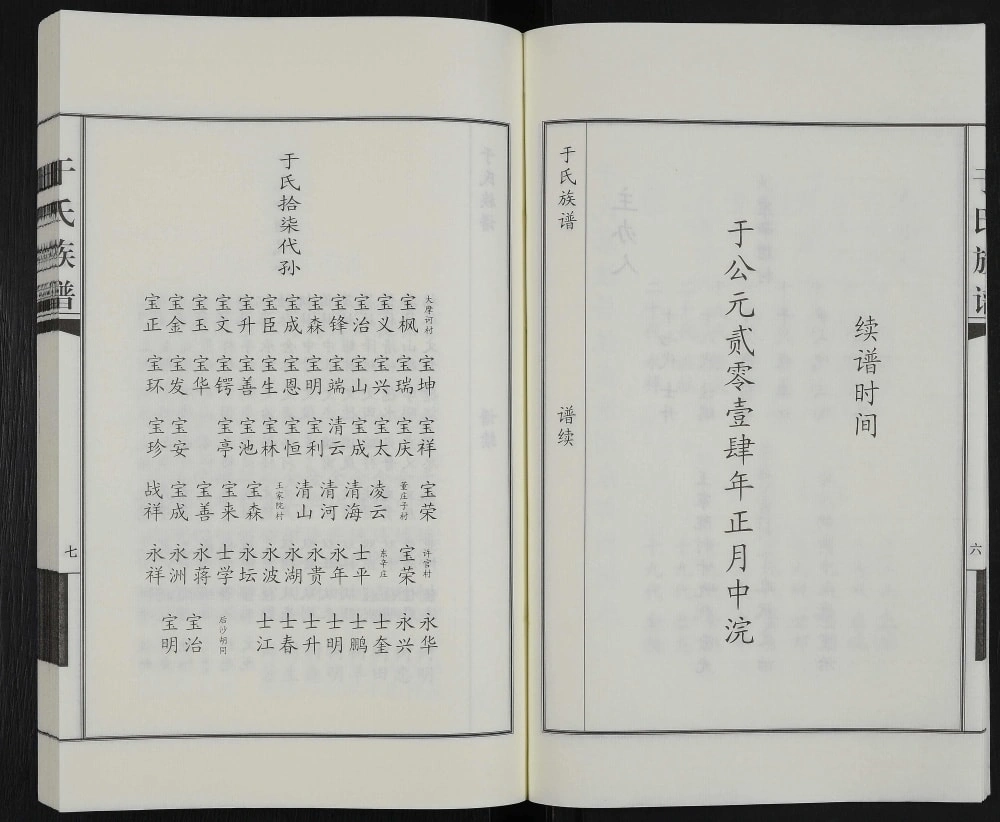 于氏族谱
六
续谱时间
于公元贰零壹肆年正月中浣
于氏族谱
谱续
于氏拾柒代孙
大摩诃村 宝枫 宝义 宝治 宝锋 宝森 宝成 宝臣 宝升 宝文 宝玉 宝金 宝正
宝坤 宝瑞 宝兴 宝山 宝端 宝明 宝恩 宝生 宝善 宝锷 宝华 宝发 宝环
宝祥 宝庆 宝太 宝成 清云 宝利 宝恒 宝林 宝池 宝亭 宝安 宝珍
宝荣 董庄子村 凌云 清海 清河 清山 王家院村 宝森 宝来 宝善 宝成 战祥
许营村 宝荣 东辛庄 士平 永年 永贵 永湖 永波 永坛 士学 永蒋 永洲 永祥
永华 永兴 士奎 士鹏 士明 士升 士春 士江 后沙胡同 宝治 宝明
于氏族谱
七